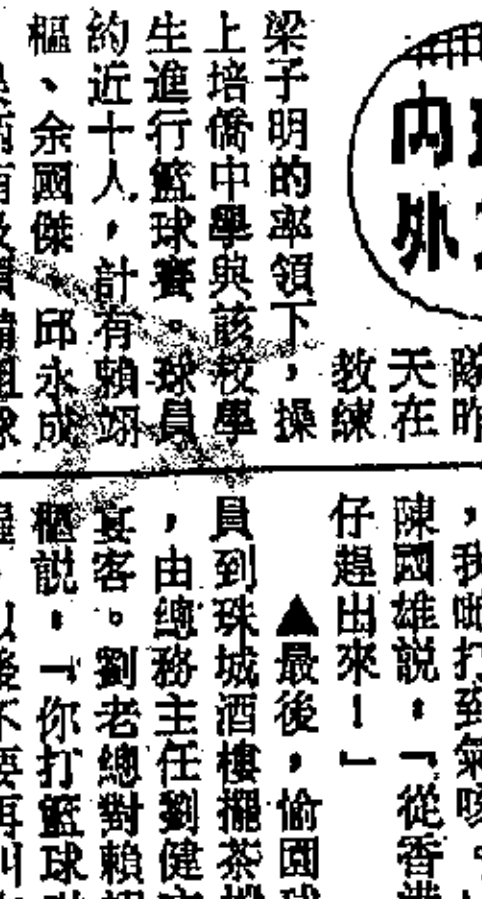 內外
隊昨
天在
教練
梁子明的率領下，操
上培僑中學與該校學
生進行籃球賽。球員
約近十人，計有賴翊
樞、余國傑、邱永成
，我哋打到氣咳
陳國雄説：「從香港
仔趕出來！」
▲最後，愉園球
員到珠城酒樓擺茶
，由總務主任劉健
宴客。劉老總對賴翊
樞説：「你打籃球
以後不要再叫